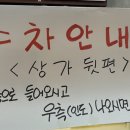 주차안내
<상가 뒷편>
으로 들어오시고
우측(인도) 나오시면